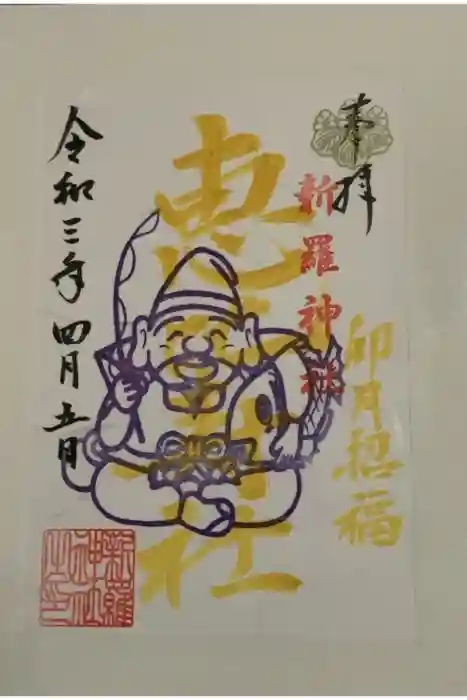 奉拝
新羅神社
卯月招福
恵比寿神社
令和三年四月五日
新羅
神社
之印